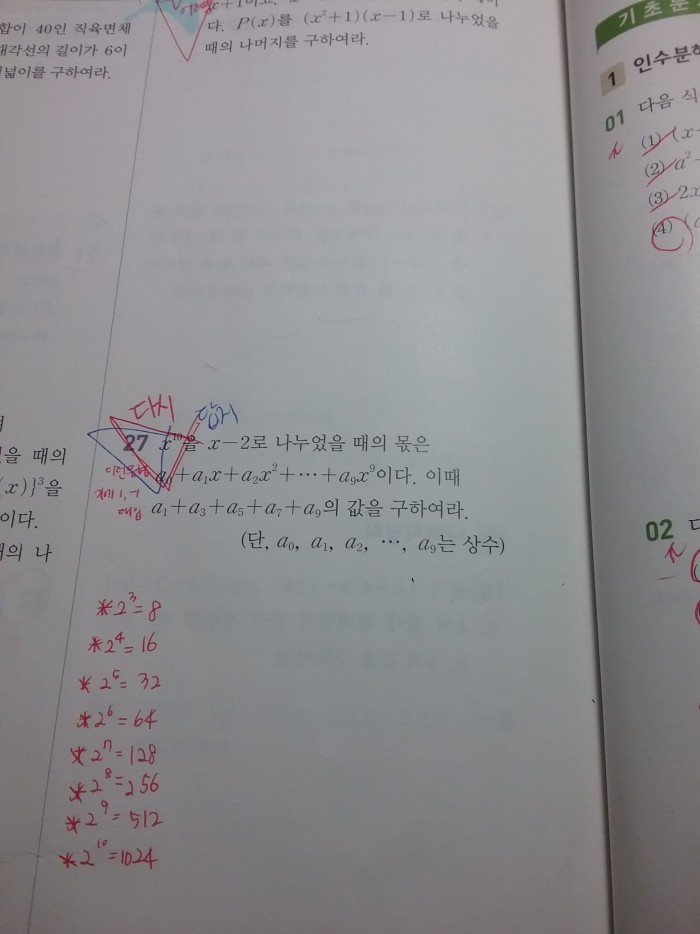 합이 40인 직육면체
대각선의 길이가 6이
넓이를 구하여라.
다. P(x)를 (x²+1)(x-1)로 나누었을
때의 나머지를 구하여라.
기초문
1 인수분해
01 다음 식
(1) (x
(2) a²
(3) 2x
(4)
을 때의
(x)}³을
이다.
의 나
다시
27 x¹⁰을 x-2로 나누었을 때의 몫은
a₀+a₁x+a₂x²+⋯+a₉x⁹이다. 이때
a₁+a₃+a₅+a₇+a₉의 값을 구하여라.
(단, a₀, a₁, a₂, ⋯, a₉는 상수)
1, -1
대입
02 다
*2³=8
*2⁴=16
*2⁵=32
*2⁶=64
*2⁷=128
*2⁸=256
*2⁹=512
*2¹⁰=1024